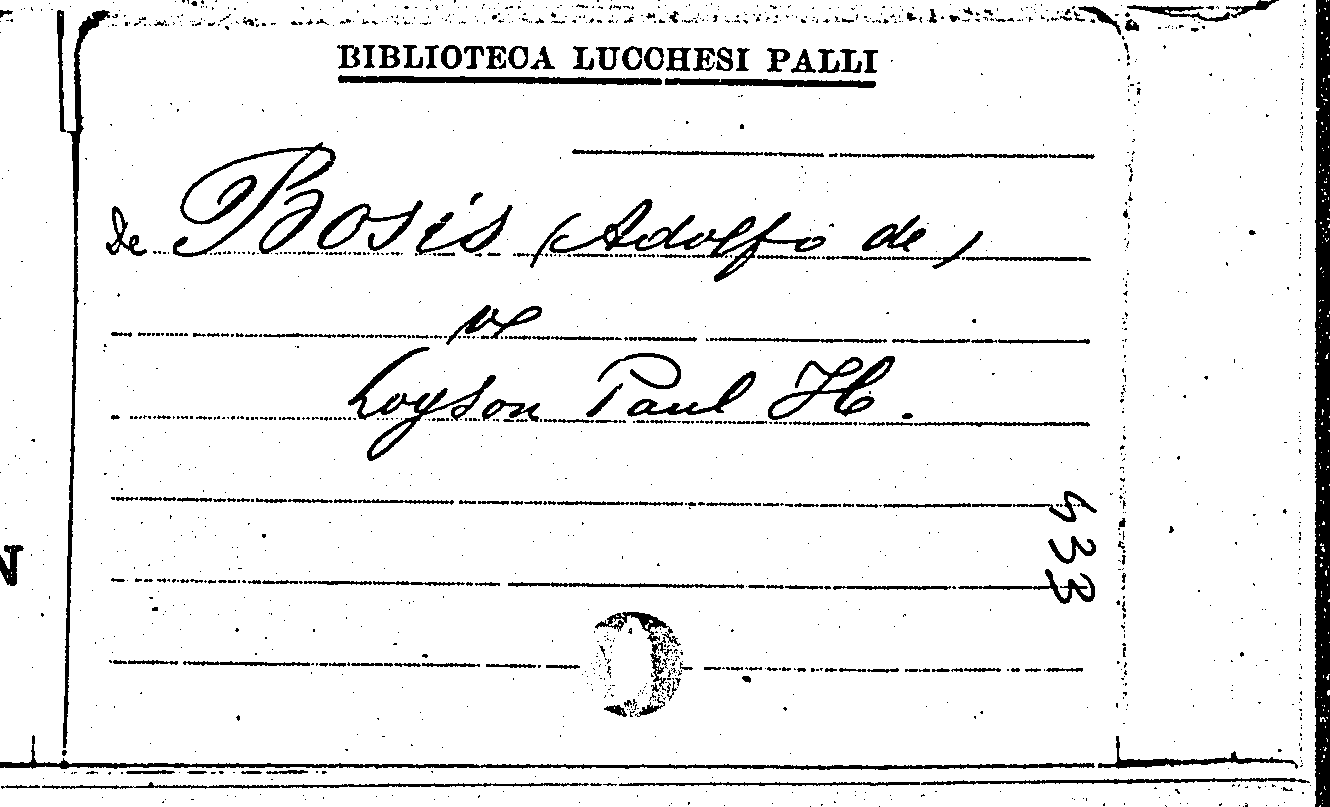 BIBLIOTECA LUCCHESI PALLI
de Bosis (Adolfo de)
Loyson Paul H.
433
N